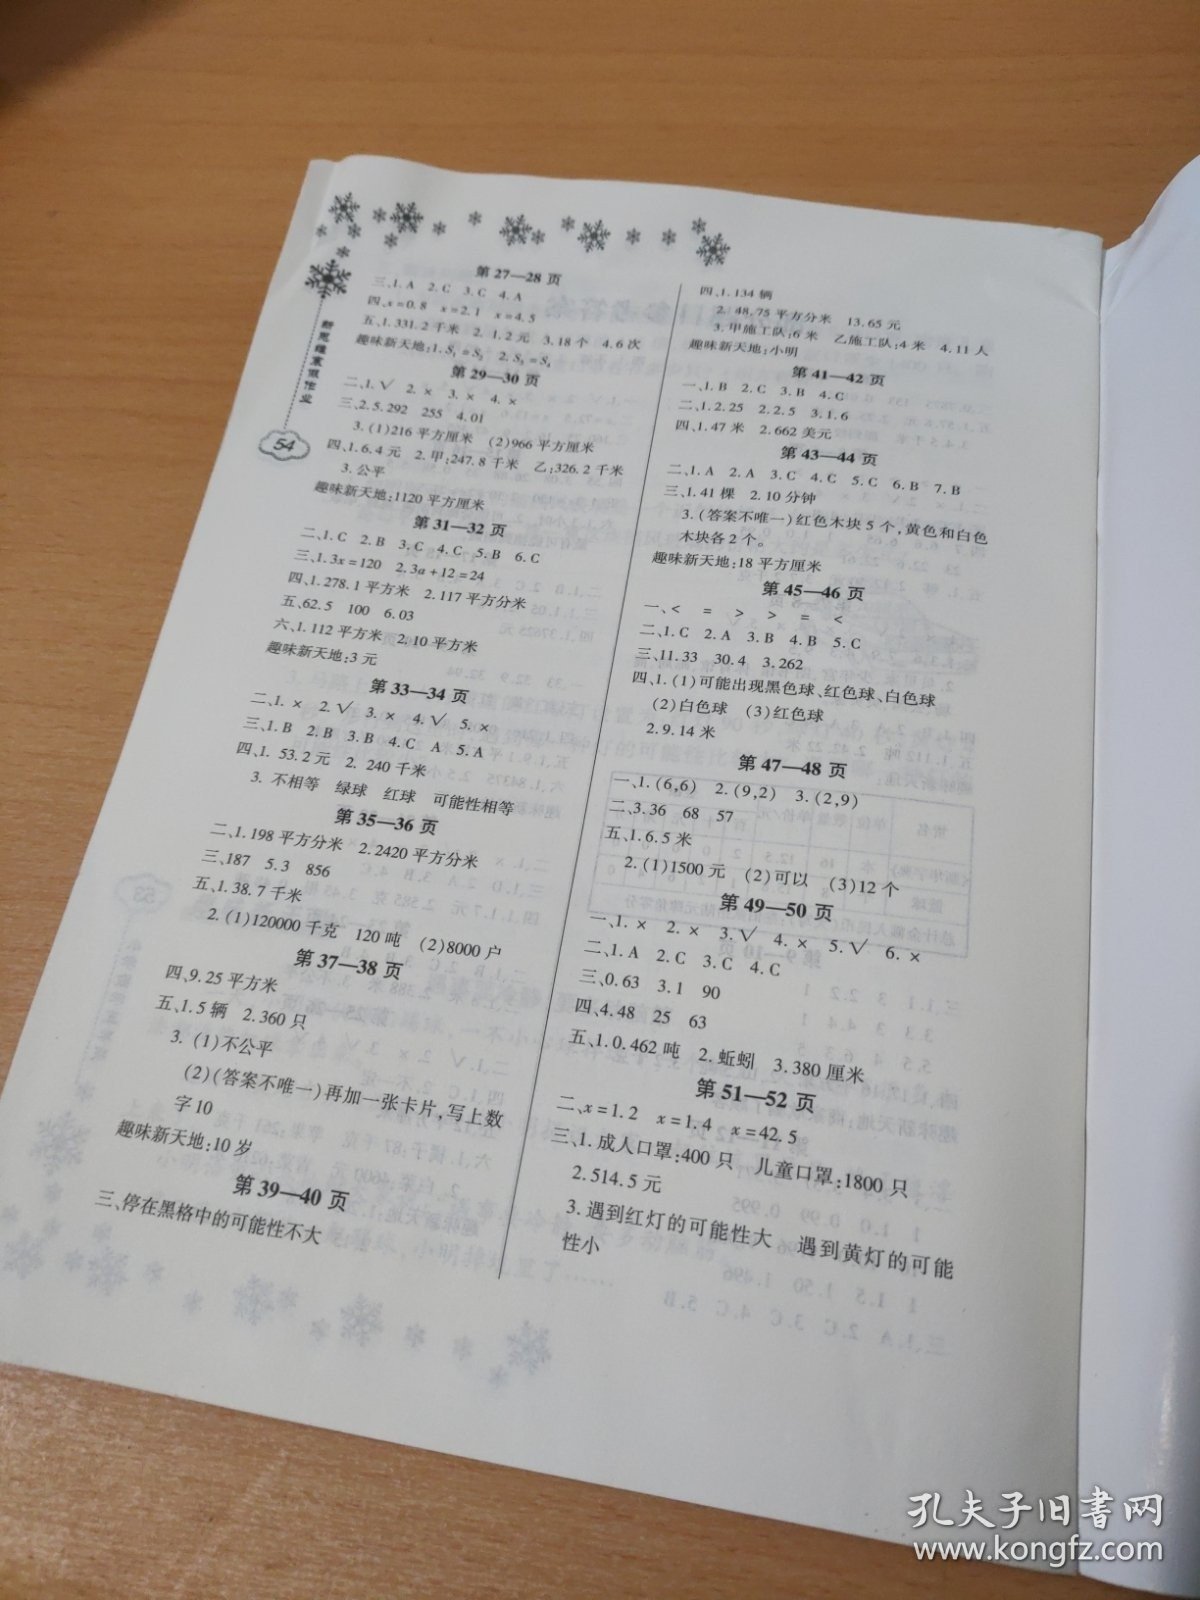 新思维寒假作业
54
第27—28页
三、1.A 2.C 3.C 4.A
四、x=0.8 x=2.1 x=4.5
五、1.331.2千米 2.1.2元 3.18个 4.6次
趣味新天地:1.S₁=S₂ 2.S₃=S₄
第29—30页
二、1.√ 2.× 3.× 4.×
三、2.5.292 255 4.01
3.(1)216平方厘米 (2)966平方厘米
四、1.6.4元 2.甲:247.8千米 乙:326.2千米
3.公平
趣味新天地:1120平方厘米
第31—32页
二、1.C 2.B 3.C 4.C 5.B 6.C
三、1.3x=120 2.3a+12=24
四、1.278.1平方米 2.117平方分米
五、62.5 100 6.03
六、1.112平方米 2.10平方米
趣味新天地:3元
第33—34页
二、1.× 2.√ 3.× 4.√ 5.×
三、1.B 2.B 3.B 4.C A 5.A
四、1. 53.2元 2. 240千米
3. 不相等 绿球 红球 可能性相等
第35—36页
二、1.198平方分米 2.2420平方分米
三、187 5.3 856
五、1.38.7千米
2.(1)120000千克 120吨 (2)8000户
第37—38页
四、9.25平方米
五、1.5辆 2.360只
3. (1)不公平
(2)(答案不唯一)再加一张卡片,写上数
字10
趣味新天地:10岁
第39—40页
三、停在黑格中的可能性不大
四、1.134辆
2. 48.75平方分米 13.65元
3.甲施工队:6米 乙施工队:4米 4.11人
趣味新天地:小明
第41—42页
一、1.B 2.C 3.B 4.C
二、1.2.25 2.2.5 3.1.6
四、1.47米 2.662美元
第43—44页
二、1.A 2.A 3.C 4.C 5.C 6.B 7.B
三、1.41棵 2.10分钟
3.(答案不唯一)红色木块5个,黄色和白色
木块各2个。
趣味新天地:18平方厘米
第45—46页
一、< = > > = <
二、1.C 2.A 3.B 4.B 5.C
三、11.33 30.4 3.262
四、1.(1)可能出现黑色球、红色球、白色球
(2)白色球 (3)红色球
2.9.14米
第47—48页
一、1.(6,6) 2.(9,2) 3.(2,9)
二、3.36 68 57
五、1.6.5米
2.(1)1500元 (2)可以 (3)12个
第49—50页
一、1.× 2.× 3.√ 4.× 5.√ 6.×
二、1.A 2.C 3.C 4.C
三、0.63 3.1 90
四、4.48 25 63
五、1.0.462吨 2.蚯蚓 3.380厘米
第51—52页
二、x=1.2 x=1.4 x=42.5
三、1.成人口罩:400只 儿童口罩:1800只
2.514.5元
3.遇到红灯的可能性大 遇到黄灯的可能
性小
孔夫子旧书网
www.kongfz.com